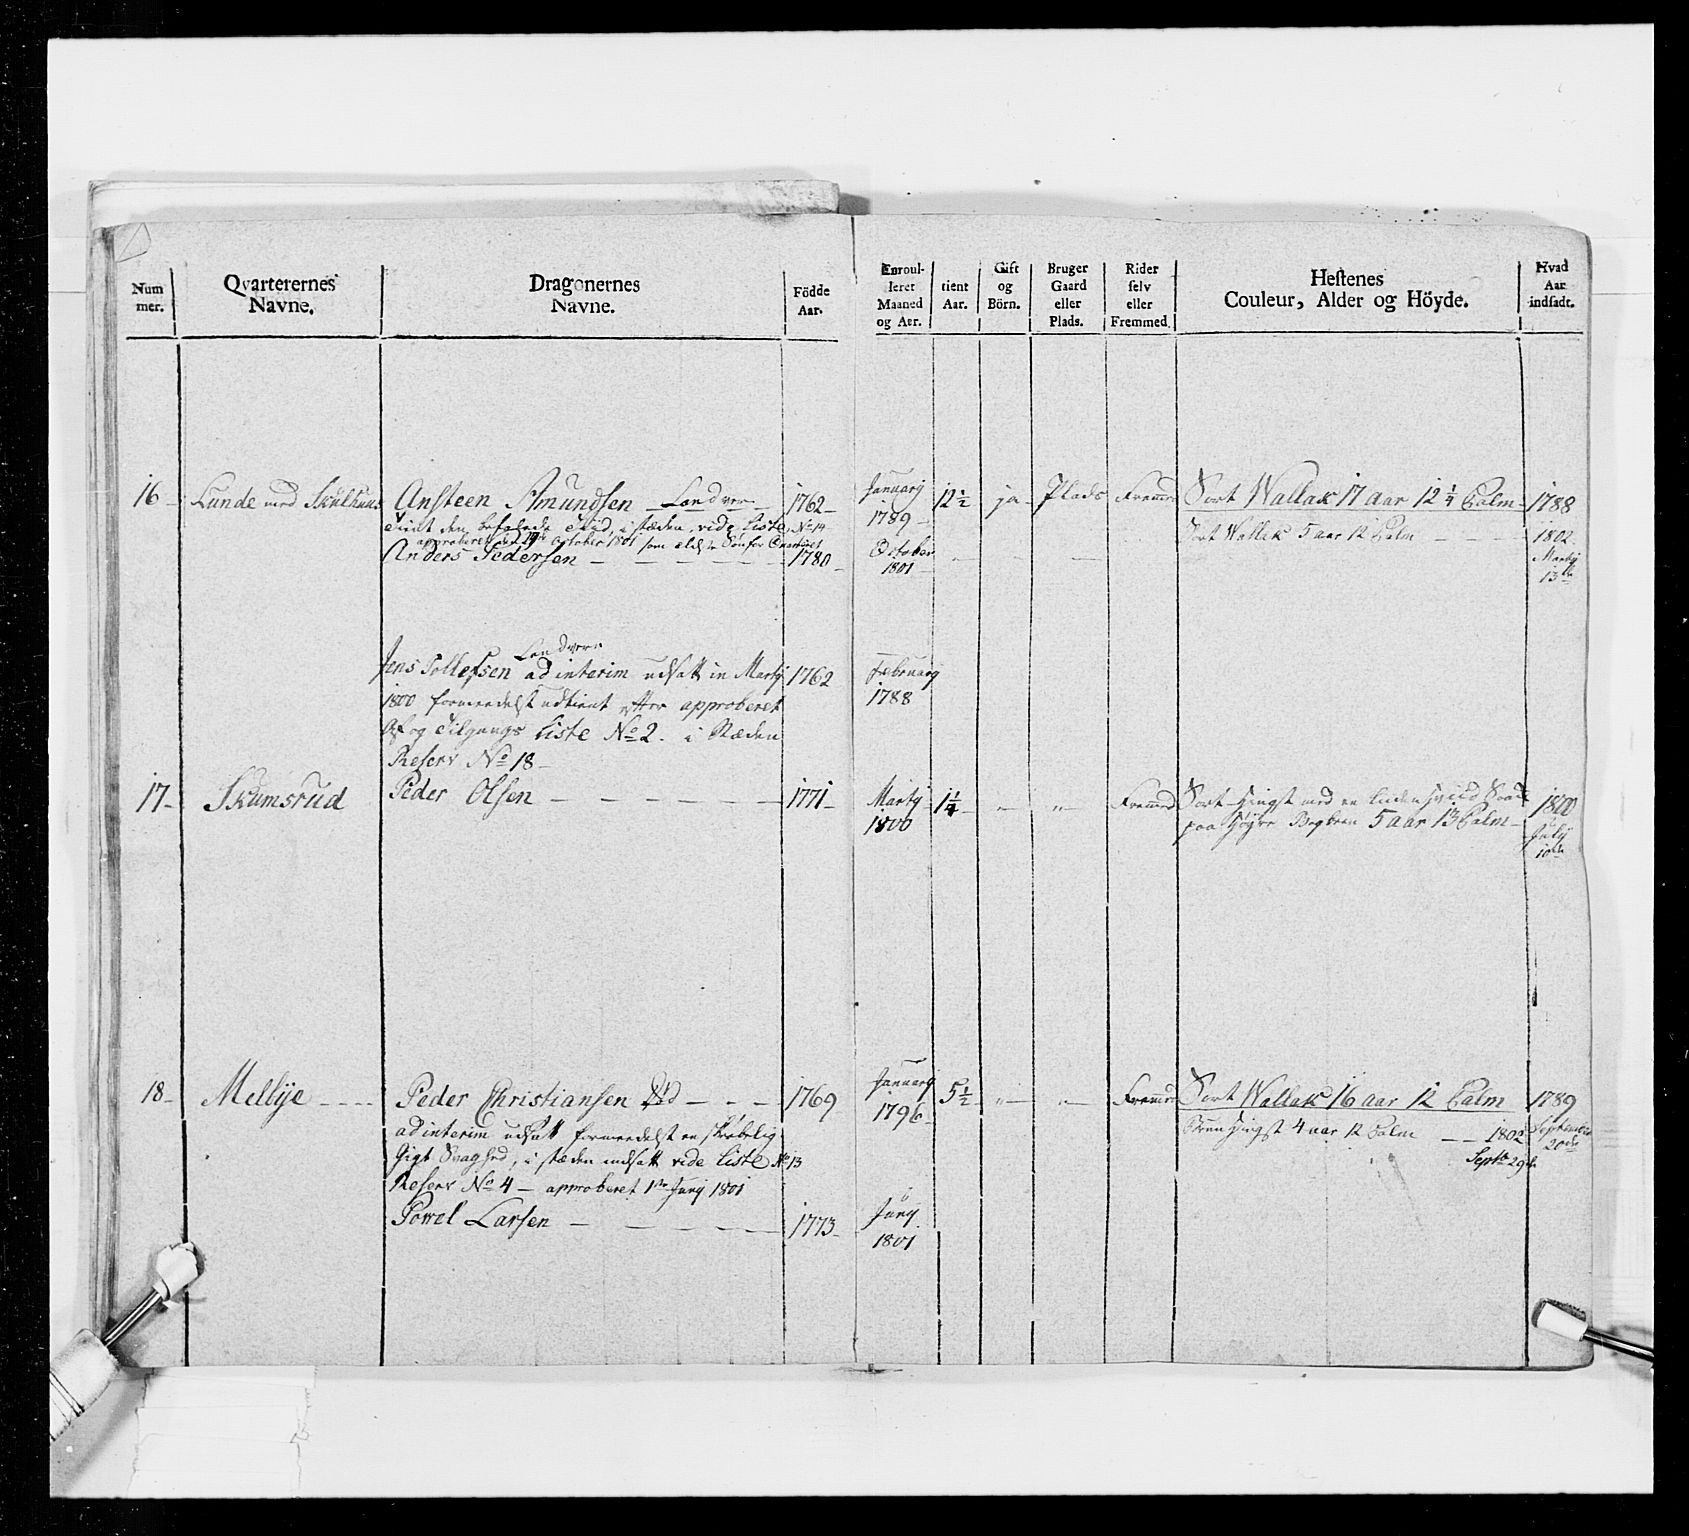 Num
mer.
Qvarterernes
Navne.
Dragonernes
Navne.
Födde
Aar.
Enroul-
leret
Maaned
og Aar.
tient
Aar.
Gift
og
Börn.
Bruger
Gaard
eller
Plads.
Rider
selv
eller
Fremmed.
Hestenes
Couleur, Alder og Höyde.
Hvad
Aar
indsadt.
16 Lunde med Ansteen Amundsen Landvern 1762 January 1789 12 1/2 ja Plads Fremmed Sort Wallak 17 aar 12 1/4 Palm 1788
tient den befalede Tiid, i stæden vide Liste No 14
approberet den October 1801 som
Anders Pedersen 1780 October 1801 Sort Wallak 5 aar 12 Palm 1802 Martj 13de
Landvern
Jens Tollefsen ad interim udsatt in Martj 1762 February 1788
1800 formedelst udtient efter approberet
Af og Tilgangs Liste No 2. i Stæden
Reserv No 18
17 Skumsrud Peder Olsen 1771 Martj 1800 1 1/4 " " Fremmed Sort Hingst med en liden hviid
paa høyre Bagbeen 5 aar 13 Palm 1800 July 10de
18 Mellije Peder Christiansen Död 1769 January 1796 5 1/2 " " Fremmed Sort Wallak 16 aar 12 Palm 1789
ad interim udsatt formedelst en skrøbelig Bruun Hingst 4 aar 12 Palm 1802 Septbr 29de
Gigt Svaghed, i stæden indsatt vide Liste No 13
Reserv No 4 approberet 1ste Junj 1801
Povel Larsen 1773 Junj 1801